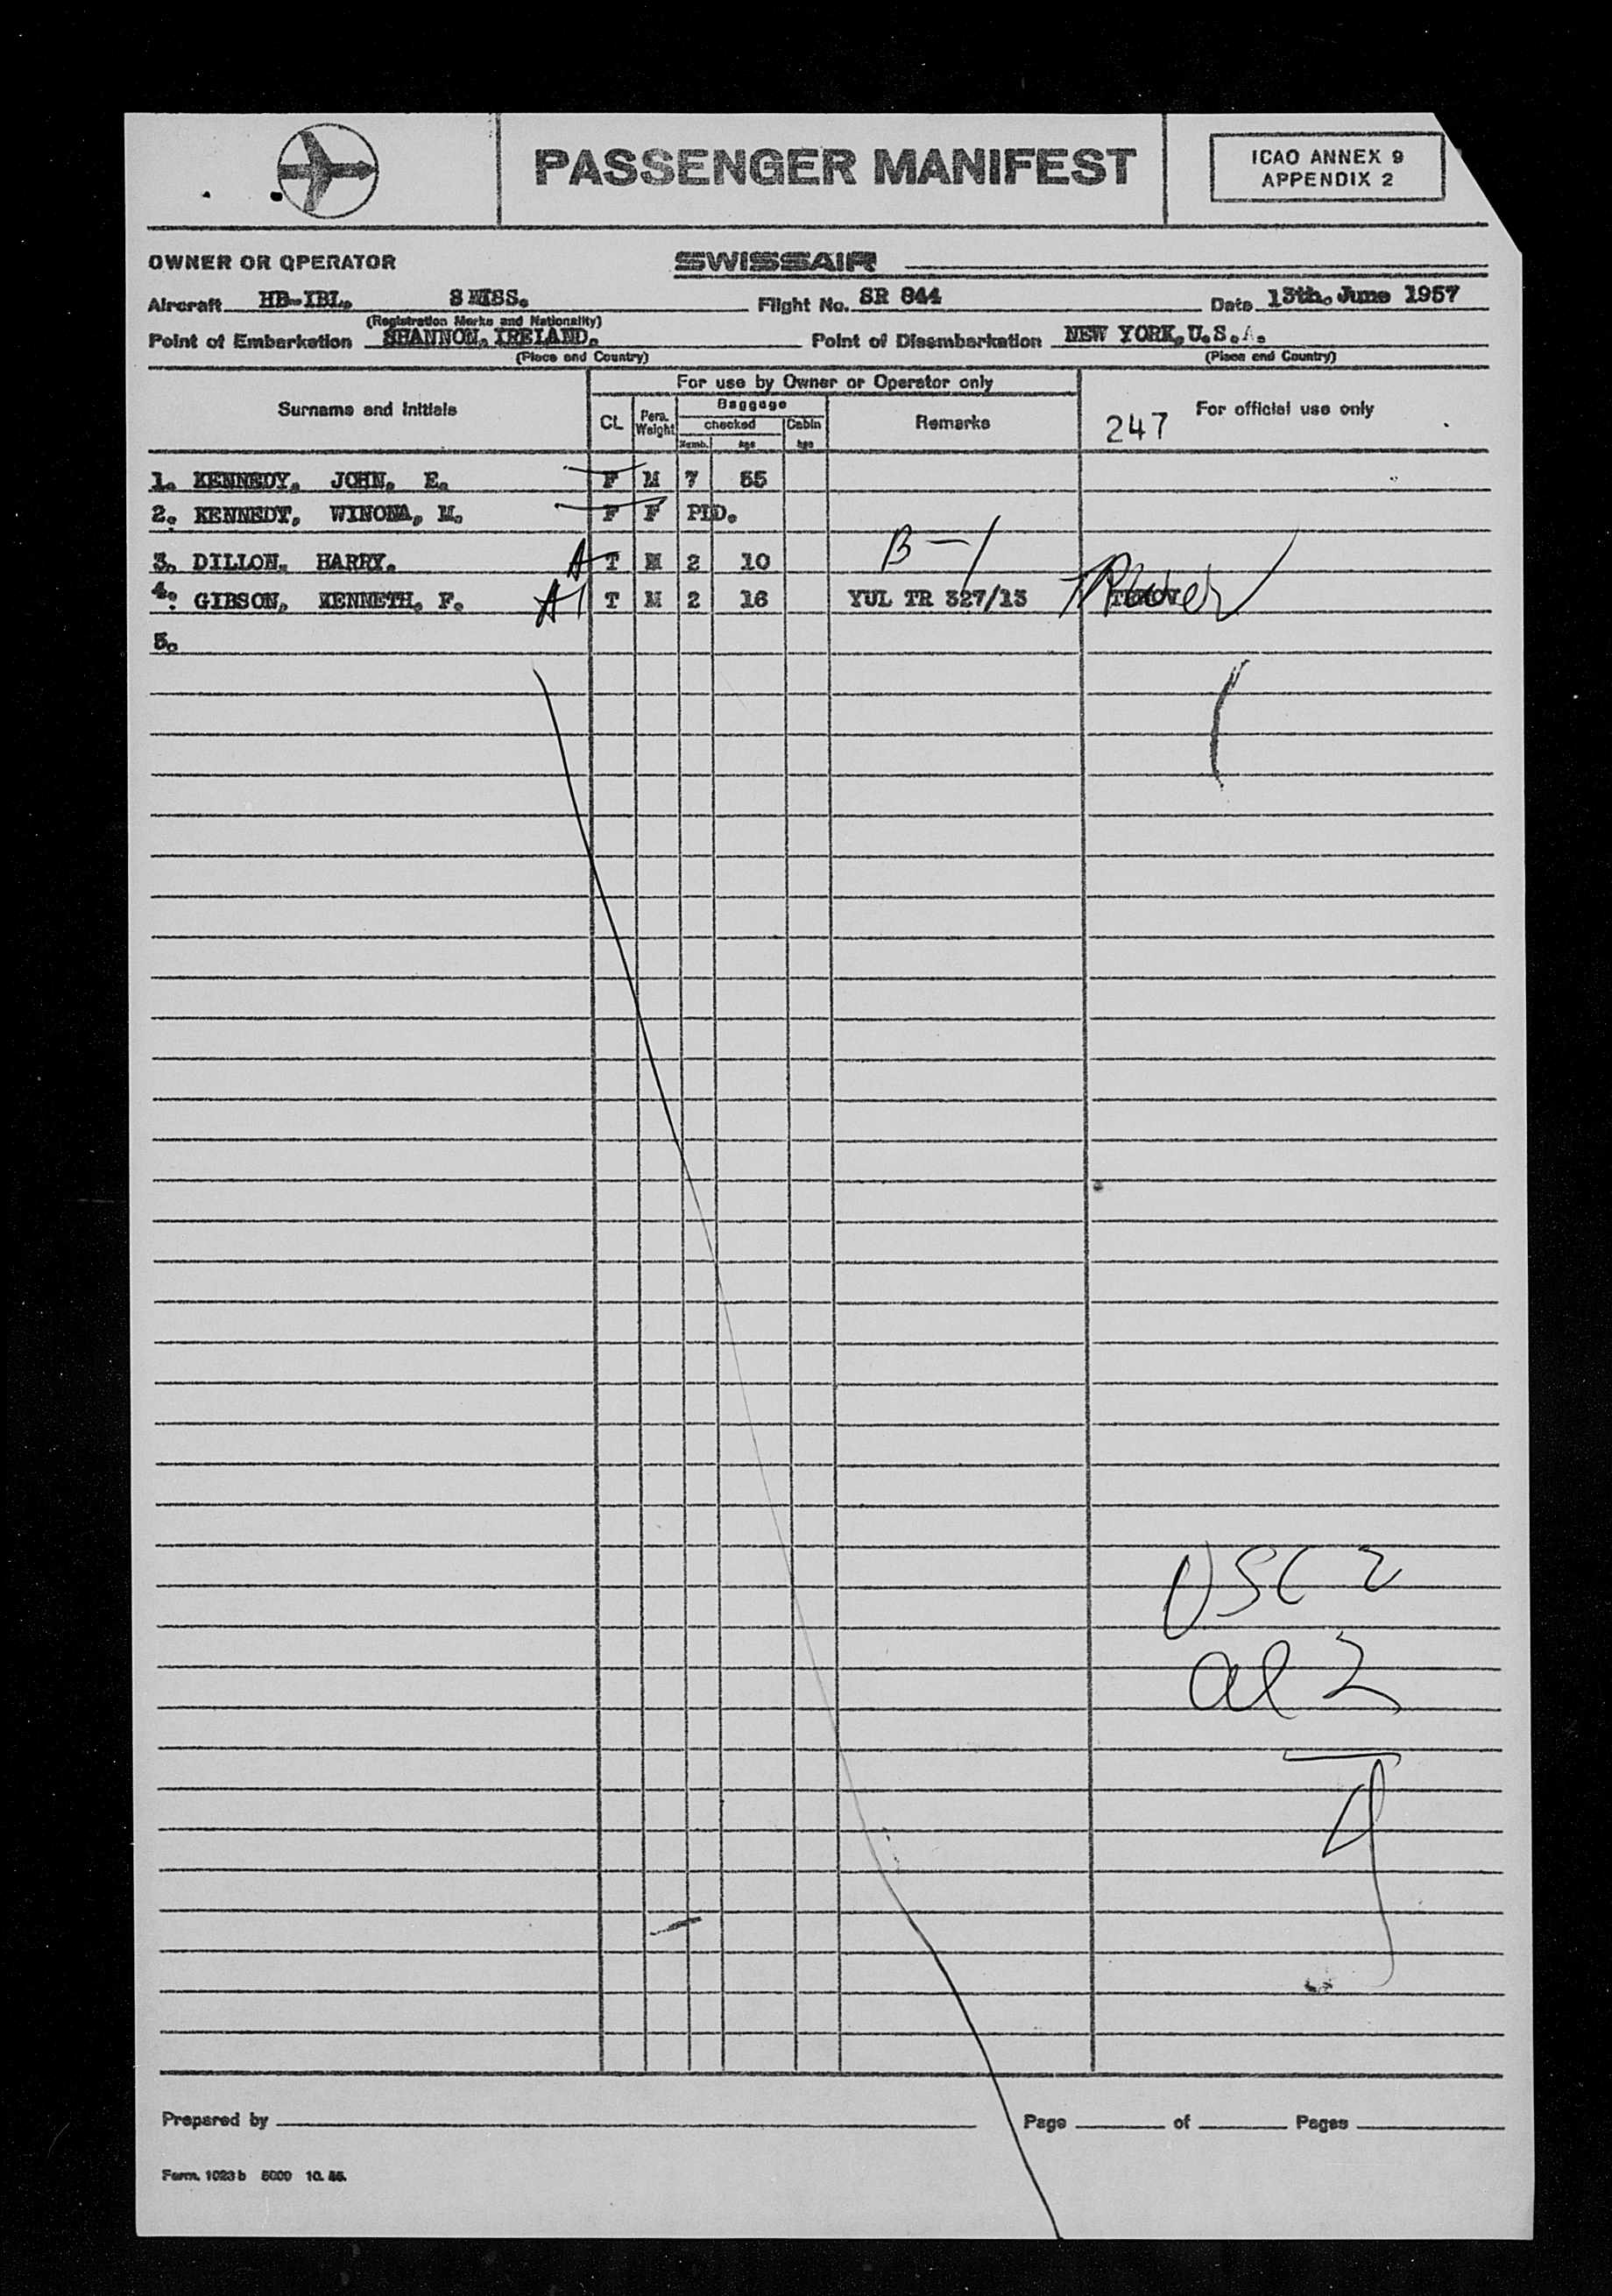 PASSENGER MANIFEST
ICAO ANNEX 9
APPENDIX 2
OWNER OR OPERATOR SWISSAIR
Aircraft HB-IBL. SWISS. Flight No. SR 844 Date 13th. June 1957
(Registration Marks and Nationality)
Point of Embarkation SHANNON, IRELAND. Point of Disembarkation NEW YORK, U.S.A.
(Place and Country) (Place and Country)
For use by Owner or Operator only
Surname and initials CL Pers. Weight Baggage checked Numb. kgs Cabin kgs Remarks 247 For official use only
1. KENNEDY. JOHN. E. F M 7 55
2. KENNEDY, WINONA, M. F F PLD.
3. DILLON. HARRY. A T M 2 10 B-1
4. GIBSON, KENNETH. F. A1 T M 2 16 YUL TR 327/13
5.
USC 2
al 2
4
Prepared by Page of Pages
Form. 1023 b 5000 10. 55.